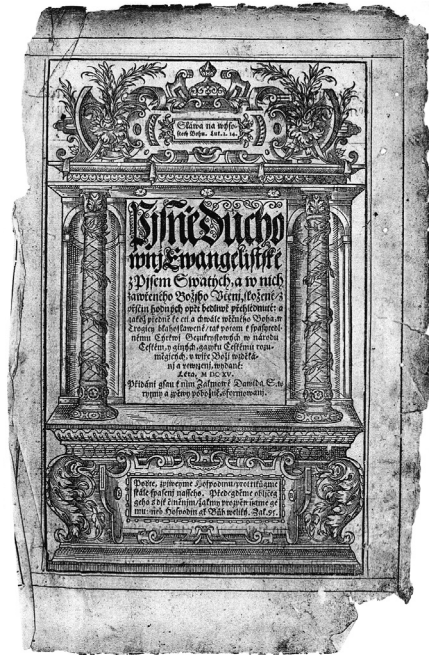 Sláwa na wýso-
stech Bohu. Luk. 2. 14.
Pjsně Ducho
wnj Ewangelistské
z Pjsem Swatých, a w nich
zawřeného Božjho Včenj, složené/ z
přjčin hodných opět bedliwě přehlédnuté: a
gakož předně ke cti a chwále wěčného Boha, w
Trogicy blahoslawené/ tak potom k spasytedl-
nému Cýrkwj Gezukrystowých w národu
Českém, y giných, gazyku Českému rozu-
měgjcých, v wjře Božj wzdělá-
nj a vtwrzenj, wydané:
Léta, M DC XV.
Přidáni gsau k nim Žalmowé Dawida S. w
rytmy a zpěwy pobožné, sformowanj.
Podte, zpjweyme Hospodinu/ prokřikůgme
skále spasenj našseho. Předegděme obličeg
geho s djk činěnjm/ žalmy prozpěwůgme ge
mu: neb Hospodin gest Bůh weliký. Žal. 95.